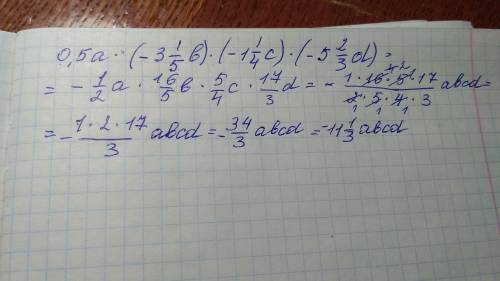 0,5a · (-3 1/5 b) · (-1 1/4 c) · (-5 2/3 d) =
= - 1/2 a · 16/5 b · 5/4 c · 17/3 d = - (1 · 16 · 5 · 17)/(2 · 5 · 4 · 3) abcd =
= - (1 · 2 · 17)/3 abcd = - 34/3 abcd = -11 1/3 abcd